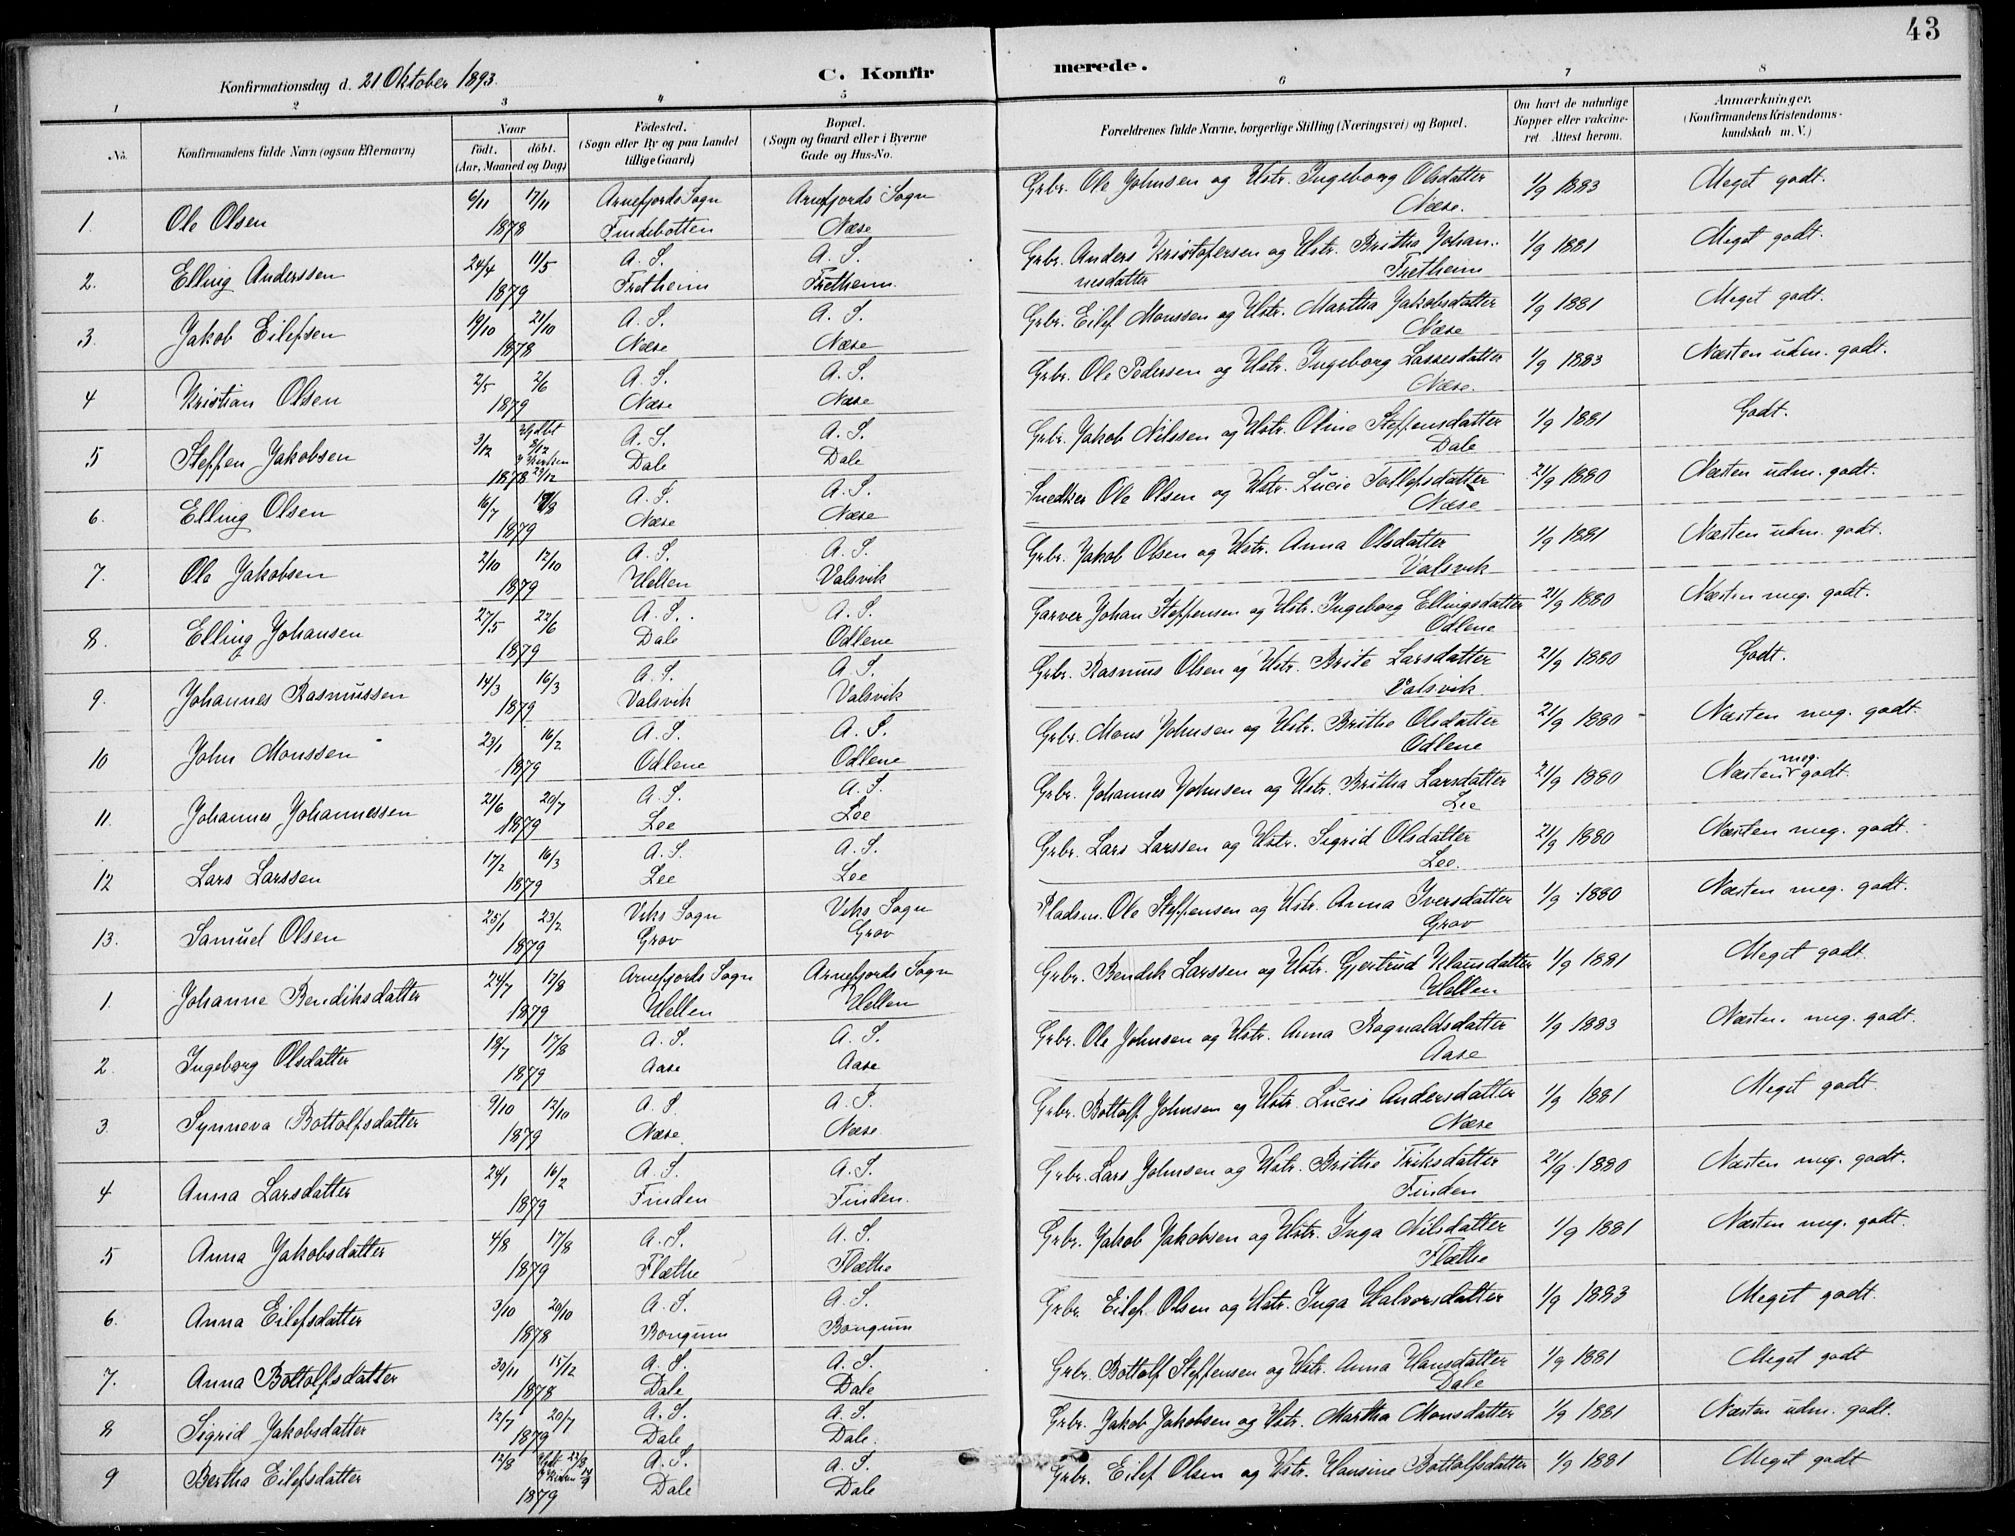 43
Konfirmationsdag d. 21 Oktober 1893.
C. Konfirmerede.
1 2 3 4 5 6 7 8
No. Konfirmandens fulde Navn (ogsaa Efternavn) Naar født. døbt. (Aar, Maaned og Dag) Fødested. (Sogn eller By og paa Landet tillige Gaard) Bopæl. (Sogn og Gaard eller i Byerne Gade og Hus-No. Forældrenes fulde Navne, borgerlige Stilling (Næringsvei) og Bopæl. Om havt de naturlige Kopper eller vaccineret Attest herom. Anmærkninger. (Konfirmandens Kristendomskundskab m. V.)
1. Ole Olsen 6/11 17/11 1878 Arnefjords Sogn Findebotten Arnefjords Sogn Næse Grbr. Ole Johnsen og Hstr. Ingeborg Olsdatter Næse. 1/9 1883 Meget godt.
2. Elling Anderssen 24/4 11/5 1879 A. S. Fretheim A. S. Fretheim. Grbr. Anders Kristofersen og Hstr. Britha Johannesdatter Fretheim 1/9 1881 Meget godt.
3. Jakob Eilefsen 19/10 21/10 1878 A. S. Næse A. S. Næse Grbr. Eilef Monssen og Hstr. Martha Jakobsdatter Næse 1/9 1881 Meget godt.
4 Kristian Olsen 2/5 2/6 1879 A. S. Næse A. S. Næse Grbr. Ole Pedersen og Hstr. Ingeborg Lassesdatter Næse. 1/9 1883 Næsten udm. godt.
5 Steffen Jakobsen 3/12 8/12 29/12 1878 A. S. Dale A. S. Dale Grbr. Jakob Nilssen og Hstr. Oline Steffensdatter Dale 1/9 1881 Godt.
6. Elling Olsen 16/7 1879 A. S. Næse A. S. Næse Snedker Ole Olsen og Hstr. Lucie Tollefsdatter Næse 21/9 1880 Næsten udm. godt.
7. Ole Jakobsen 2/10 12/10 1879 A. S. Hellen A. S. Valsvik Grbr. Jakob Olsen og Hstr. Anna Olsdatter Valsvik 1/9 1881 Næsten udm. godt.
8. Elling Johansen 27/5 22/6 1879 A. S. Dale A. S. Odlene Garver Johan Steffensen og Hstr. Ingeborg Ellingsdatter Odlene 21/9 1880 Næsten meg. godt.
9. Johannes Rasmussen 14/3 16/3 1879 A. S. Valsvik A. S. Valsvik Grbr. Rasmus Olsen og Hstr. Brite Larsdatter Valsvik. 21/9 1880 Godt.
10 John Monssen 23/1 16/2 1879 A. S. Odlene A. S. Odlene Grbr. Mons Johnsen og Hstr. Brithe Olsdatter Odlene 21/9 1880 Næsten meg. godt.
11. Johannes Johannessen 21/6 20/7 1879 A. S. Lee A. S. Lee Grbr. Johannes Johnsen og Hstr. Britha Larsdatter Lee 21/9 1880 Næsten meg. godt.
12 Lars Larssen 17/2 16/3 1879 A. S. Lee A. S. Lee Grbr. Lars Larssen og Hstr. Sigrid Olsdatter Lee. 21/9 1880 Næsten meg. godt.
13. Samuel Olsen 25/1 23/2 1879 Viks Sogn Grov Viks Sogn Grov Pladsm. Ole Steffensen og Hstr. Anna Iversdatter Grov 1/9 1880 Næsten meg. godt.
1. Johanne Bendiksdatter 24/7 17/8 1879 Arnefjords Sogn Hellen Arnefjords Sogn Hellen Grbr. Bendik Larssen og Hstr. Gjertrud Klausdatter Hellen 1/9 1881 Meget godt.
2. Ingeborg Olsdatter 18/7 17/8 1879 A. S. Aase A. S. Aase Grbr. Ole Johnsen og Hstr. Anna Ragnaldsdatter Aase 1/9 1883 Næsten meg. godt.
3. Synneva Bottolfsdatter 9/10 12/10 1879 A. S. Næse. A. S. Næse. Grbr. Bottolf Johnsen og Hstr. Lucie Andersdatter Næse 1/9 1881 Meget godt.
4 Anna Larsdatter 24/1 16/2 1879 A. S. Finden A. S. Finden. Grbr. Lars Johnsen og Hstr. Brithe Eriksdatter Finden 21/9 1880 Næsten meg. godt.
5 Anna Jakobsdatter 4/8 17/8 1879 A. S. Flæthe A. S. Flæthe Grbr. Jakob Jakobsen og Hstr. Inga Nilsdatter Flæthe 1/9 1881 Næsten meg. godt.
6. Anna Eilefsdatter 3/10 20/10 1878 A. S. Bongum A. S. Bongum Grbr. Eilef Olsen og Hstr. Inga Halvorsdatter 1/9 1883 Meget godt.
7. Anna Bottolfsdatter 30/11 15/12 1878 A. S. Dale A. S. Dale Grbr. Bottolf Steffensen og Hstr. Anna Hansdatter Dale 1/9 1881 Meget godt
8 Sigrid Jakobsdatter 12/7 20/7 1879 A. S. Dale A. S. Dale. Grbr. Jakob Jakobsen og Hstr. Martha Monsdatter 1/9 1881 Næsten udm. godt.
9 Bertha Eilefsdatter 12/8 1879 A. S. Dale A. S. Dale Grbr. Eilef Olsen og Hstr. Hansine Bottolfsdatter 1/9 1881 Meget godt